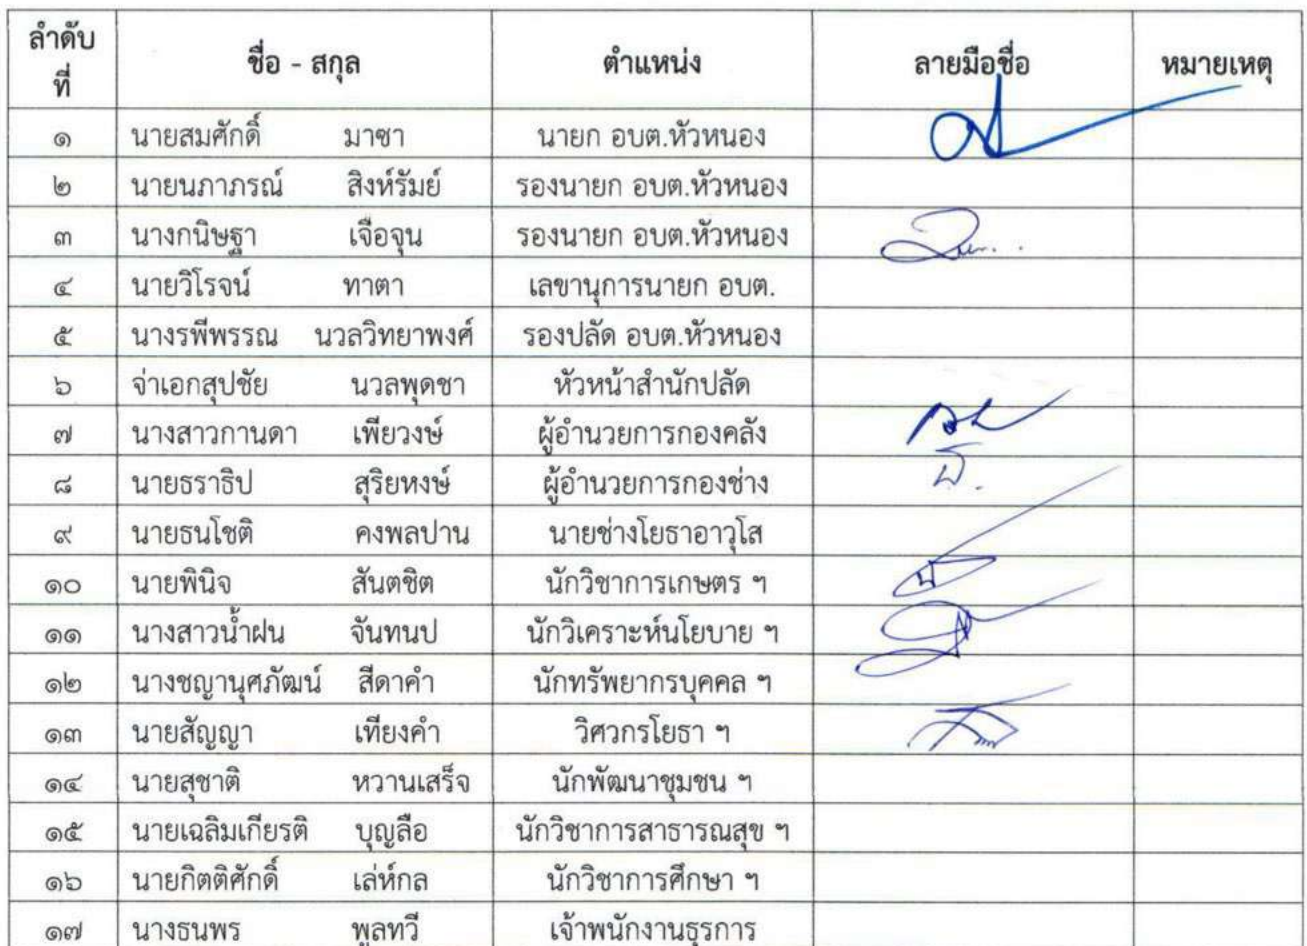 ลำดับที่ ชื่อ - สกุล ตำแหน่ง ลายมือชื่อ หมายเหตุ
๑ นายสมศักดิ์ มาซา นายก อบต.หัวหนอง
๒ นายนภาภรณ์ สิงห์รัมย์ รองนายก อบต.หัวหนอง
๓ นางกนิษฐา เจือจุน รองนายก อบต.หัวหนอง
๔ นายวิโรจน์ ทาตา เลขานุการนายก อบต.
๕ นางรพีพรรณ นวลวิทยาพงศ์ รองปลัด อบต.หัวหนอง
๖ จ่าเอกสุปชัย นวลพุดชา หัวหน้าสำนักปลัด
๗ นางสาวกานดา เพียวงษ์ ผู้อำนวยการกองคลัง
๘ นายธราธิป สุริยหงษ์ ผู้อำนวยการกองช่าง
๙ นายธนโชติ คงพลปาน นายช่างโยธาอาวุโส
๑๐ นายพินิจ สันตชิต นักวิชาการเกษตร ฯ
๑๑ นางสาวน้ำฝน จันทนป นักวิเคราะห์นโยบาย ฯ
๑๒ นางชญานุศภัฒน์ สีดาคำ นักทรัพยากรบุคคล ฯ
๑๓ นายสัญญา เทียงคำ วิศวกรโยธา ฯ
๑๔ นายสุชาติ หวานเสร็จ นักพัฒนาชุมชน ฯ
๑๕ นายเฉลิมเกียรติ บุญลือ นักวิชาการสาธารณสุข ฯ
๑๖ นายกิตติศักดิ์ เล่ห์กล นักวิชาการศึกษา ฯ
๑๗ นางธนพร พูลทวี เจ้าพนักงานธุรการ